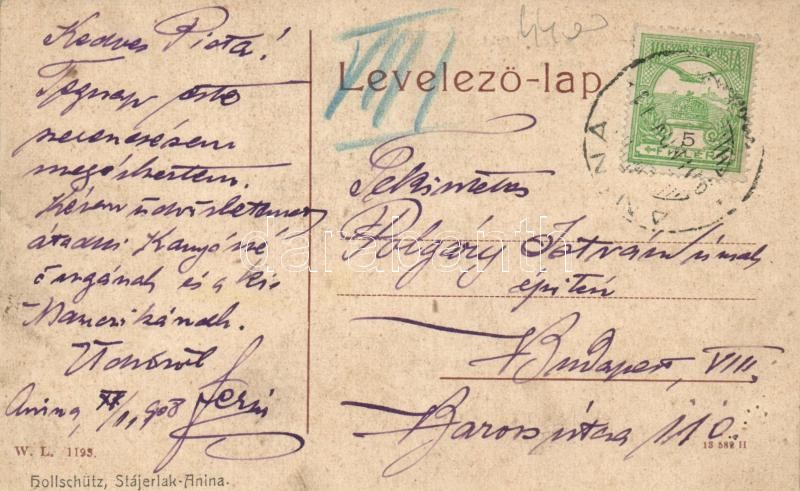 Kedves Pista!
Tegnap este
szerencsésen
megérkeztem.
Kérem üdvözletemet
átadni Kanyóné
őnagának és a kis
Manczikának.
Üdvözöl
Anina, 908
VIII
Levelező-lap
MAGYAR KIR. POSTA
5
FILLÉR
ANINA
Tekintetes
Polgáry István úrnak
építész
Budapest, VIII.
Baross utca 110.
W. L. 1193.
13 582 II
Hollschütz, Stájerlak-Anina.
darabanth